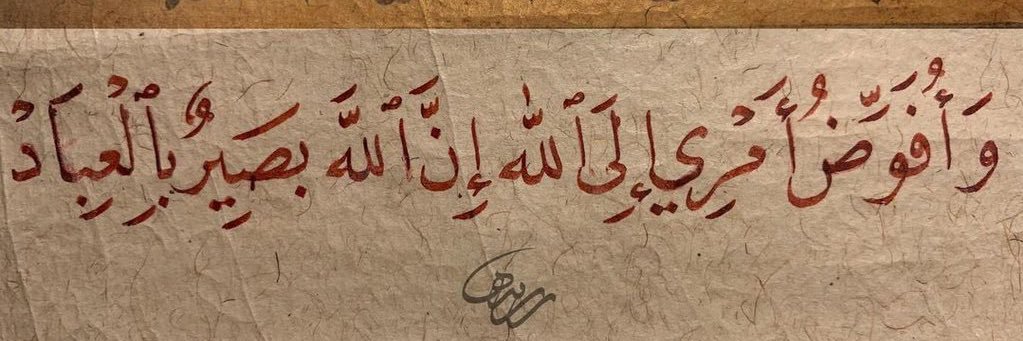 وَأُفَوِّضُ أَمْرِي إِلَى ٱللَّهِ إِنَّ ٱللَّهَ بَصِيرٌ بِٱلْعِبَادْ